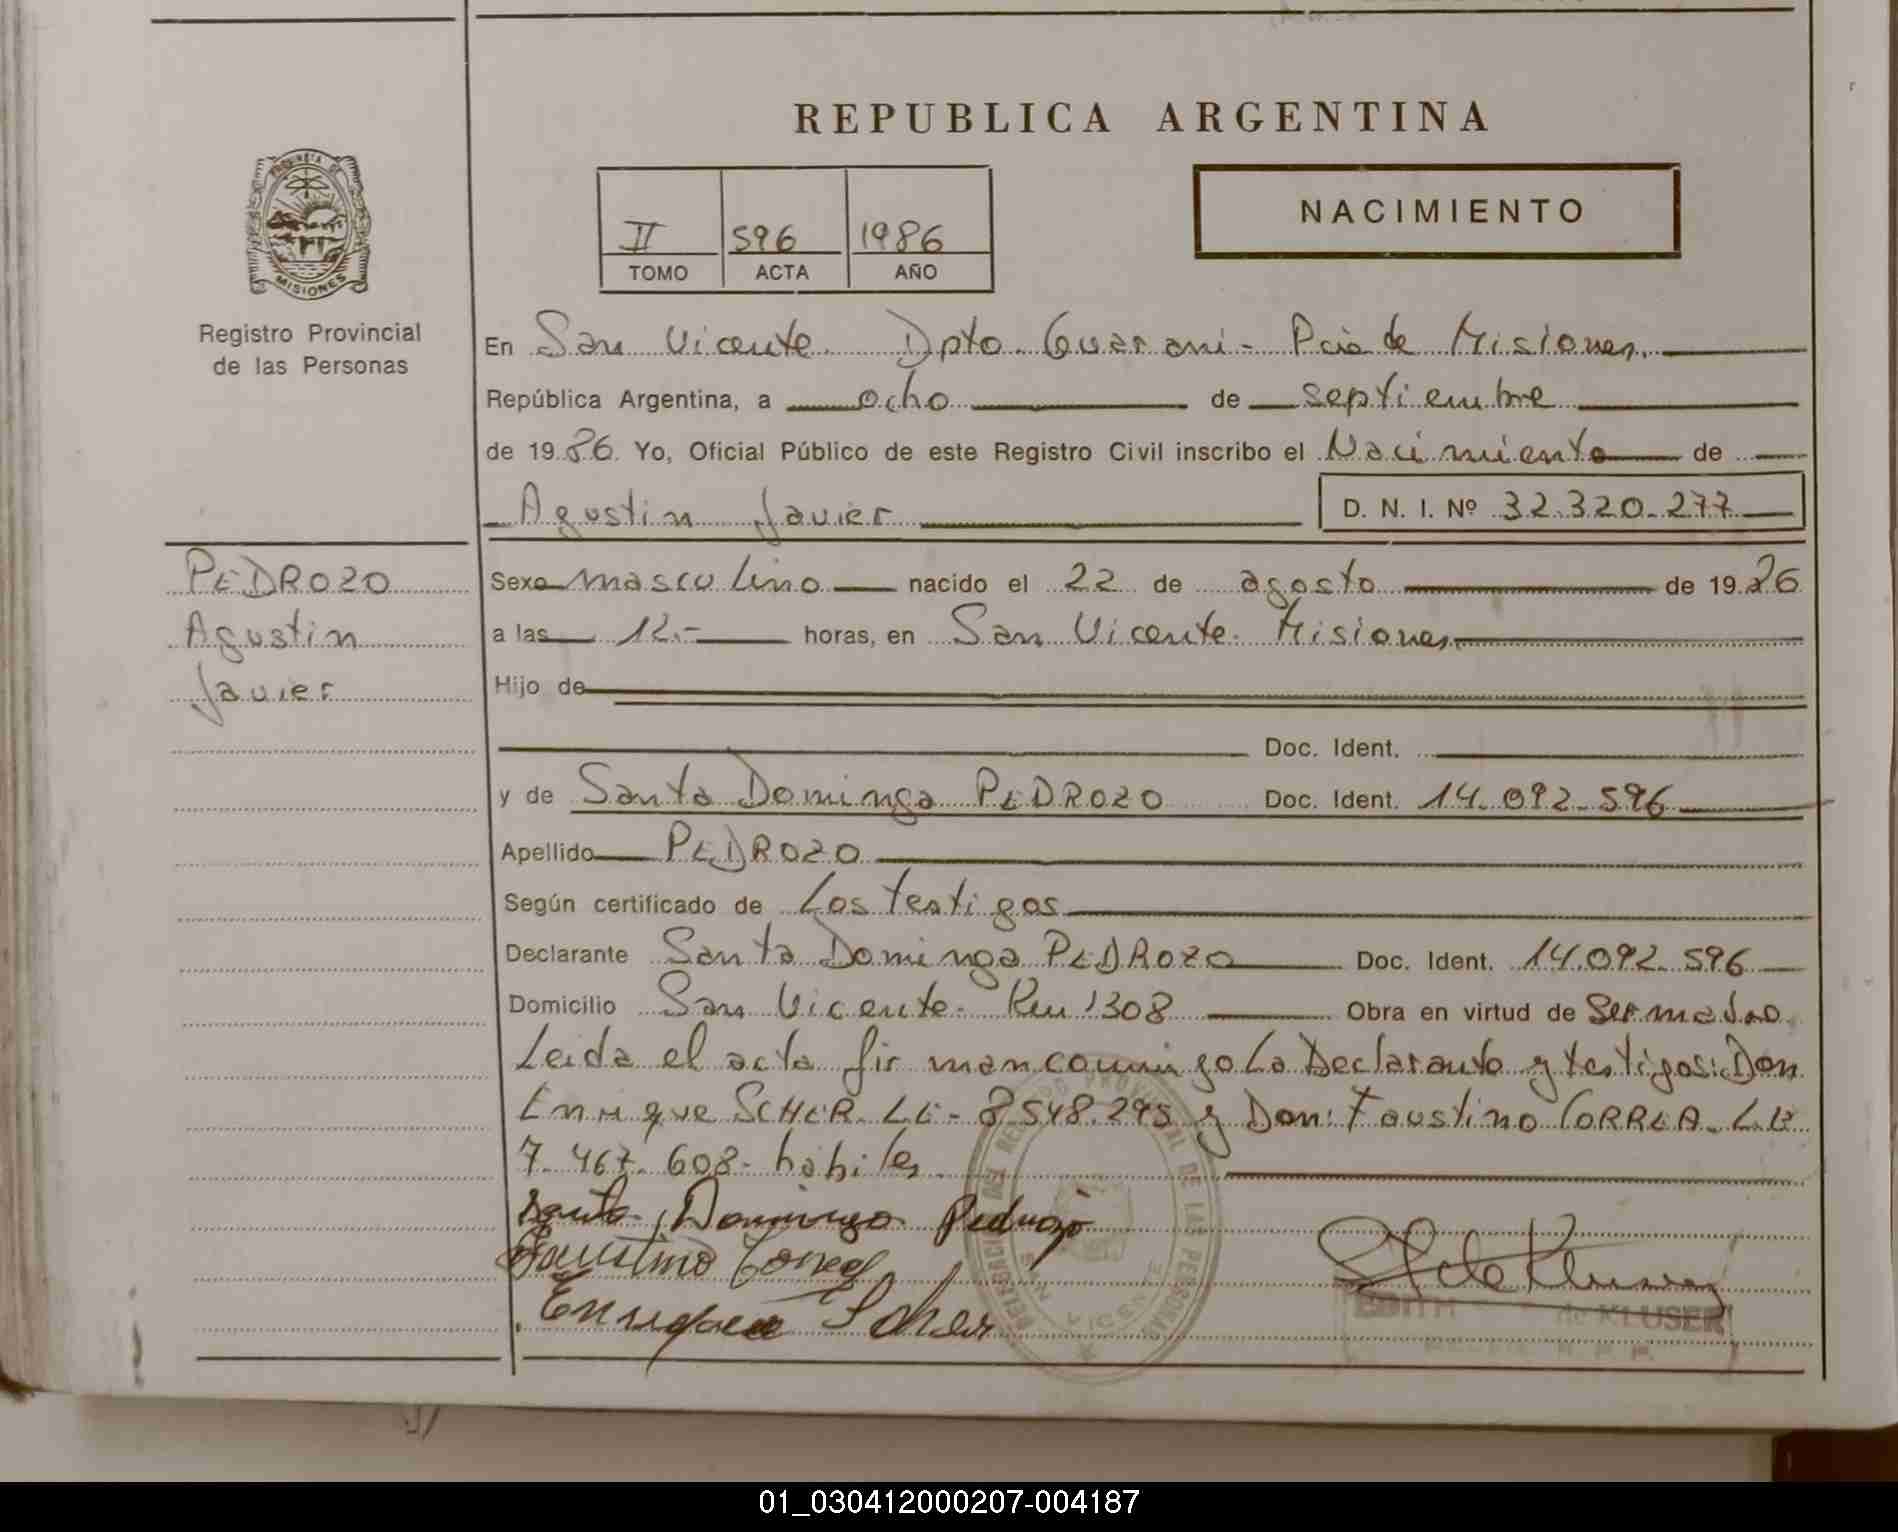 REPUBLICA ARGENTINA
PROVINCIA DE
MISIONES
Registro Provincial
de las Personas
II 596 1986
TOMO ACTA AÑO
NACIMIENTO
En San Vicente. Dpto. Guarani - Pcia de Misiones.
República Argentina, a ocho de septiembre
de 1986. Yo, Oficial Público de este Registro Civil inscribo el Nacimiento de
Agustin Javier
D. N. I. Nº 32.320.277
PEDROZO
Agustin
Javier
Sexo masculino nacido el 22 de agosto de 1986
a las 12.- horas, en San Vicente. Misiones
Hijo de
Doc. Ident.
y de Santa Dominga PEDROZO Doc. Ident. 14.092.596
Apellido PEDROZO
Según certificado de Los testigos
Declarante Santa Dominga PEDROZO Doc. Ident. 14.092.596
Domicilio San Vicente. Km 1308 Obra en virtud de Ser madre.
Leida el acta firman conmigo La Declarante y testigos: Don
Enrique SCHER. LE- 8.548.295 y Don: Faustino CORREA. L.E
7.467.608- habiles.
Santa Dominga Pedrozo
Faustino Correa
Enrique Scher
DELEGACION DEL REGISTRO PROVINCIAL DE LAS PERSONAS
SAN VICENTE
EDITH de KLUSER
01_030412000207-004187